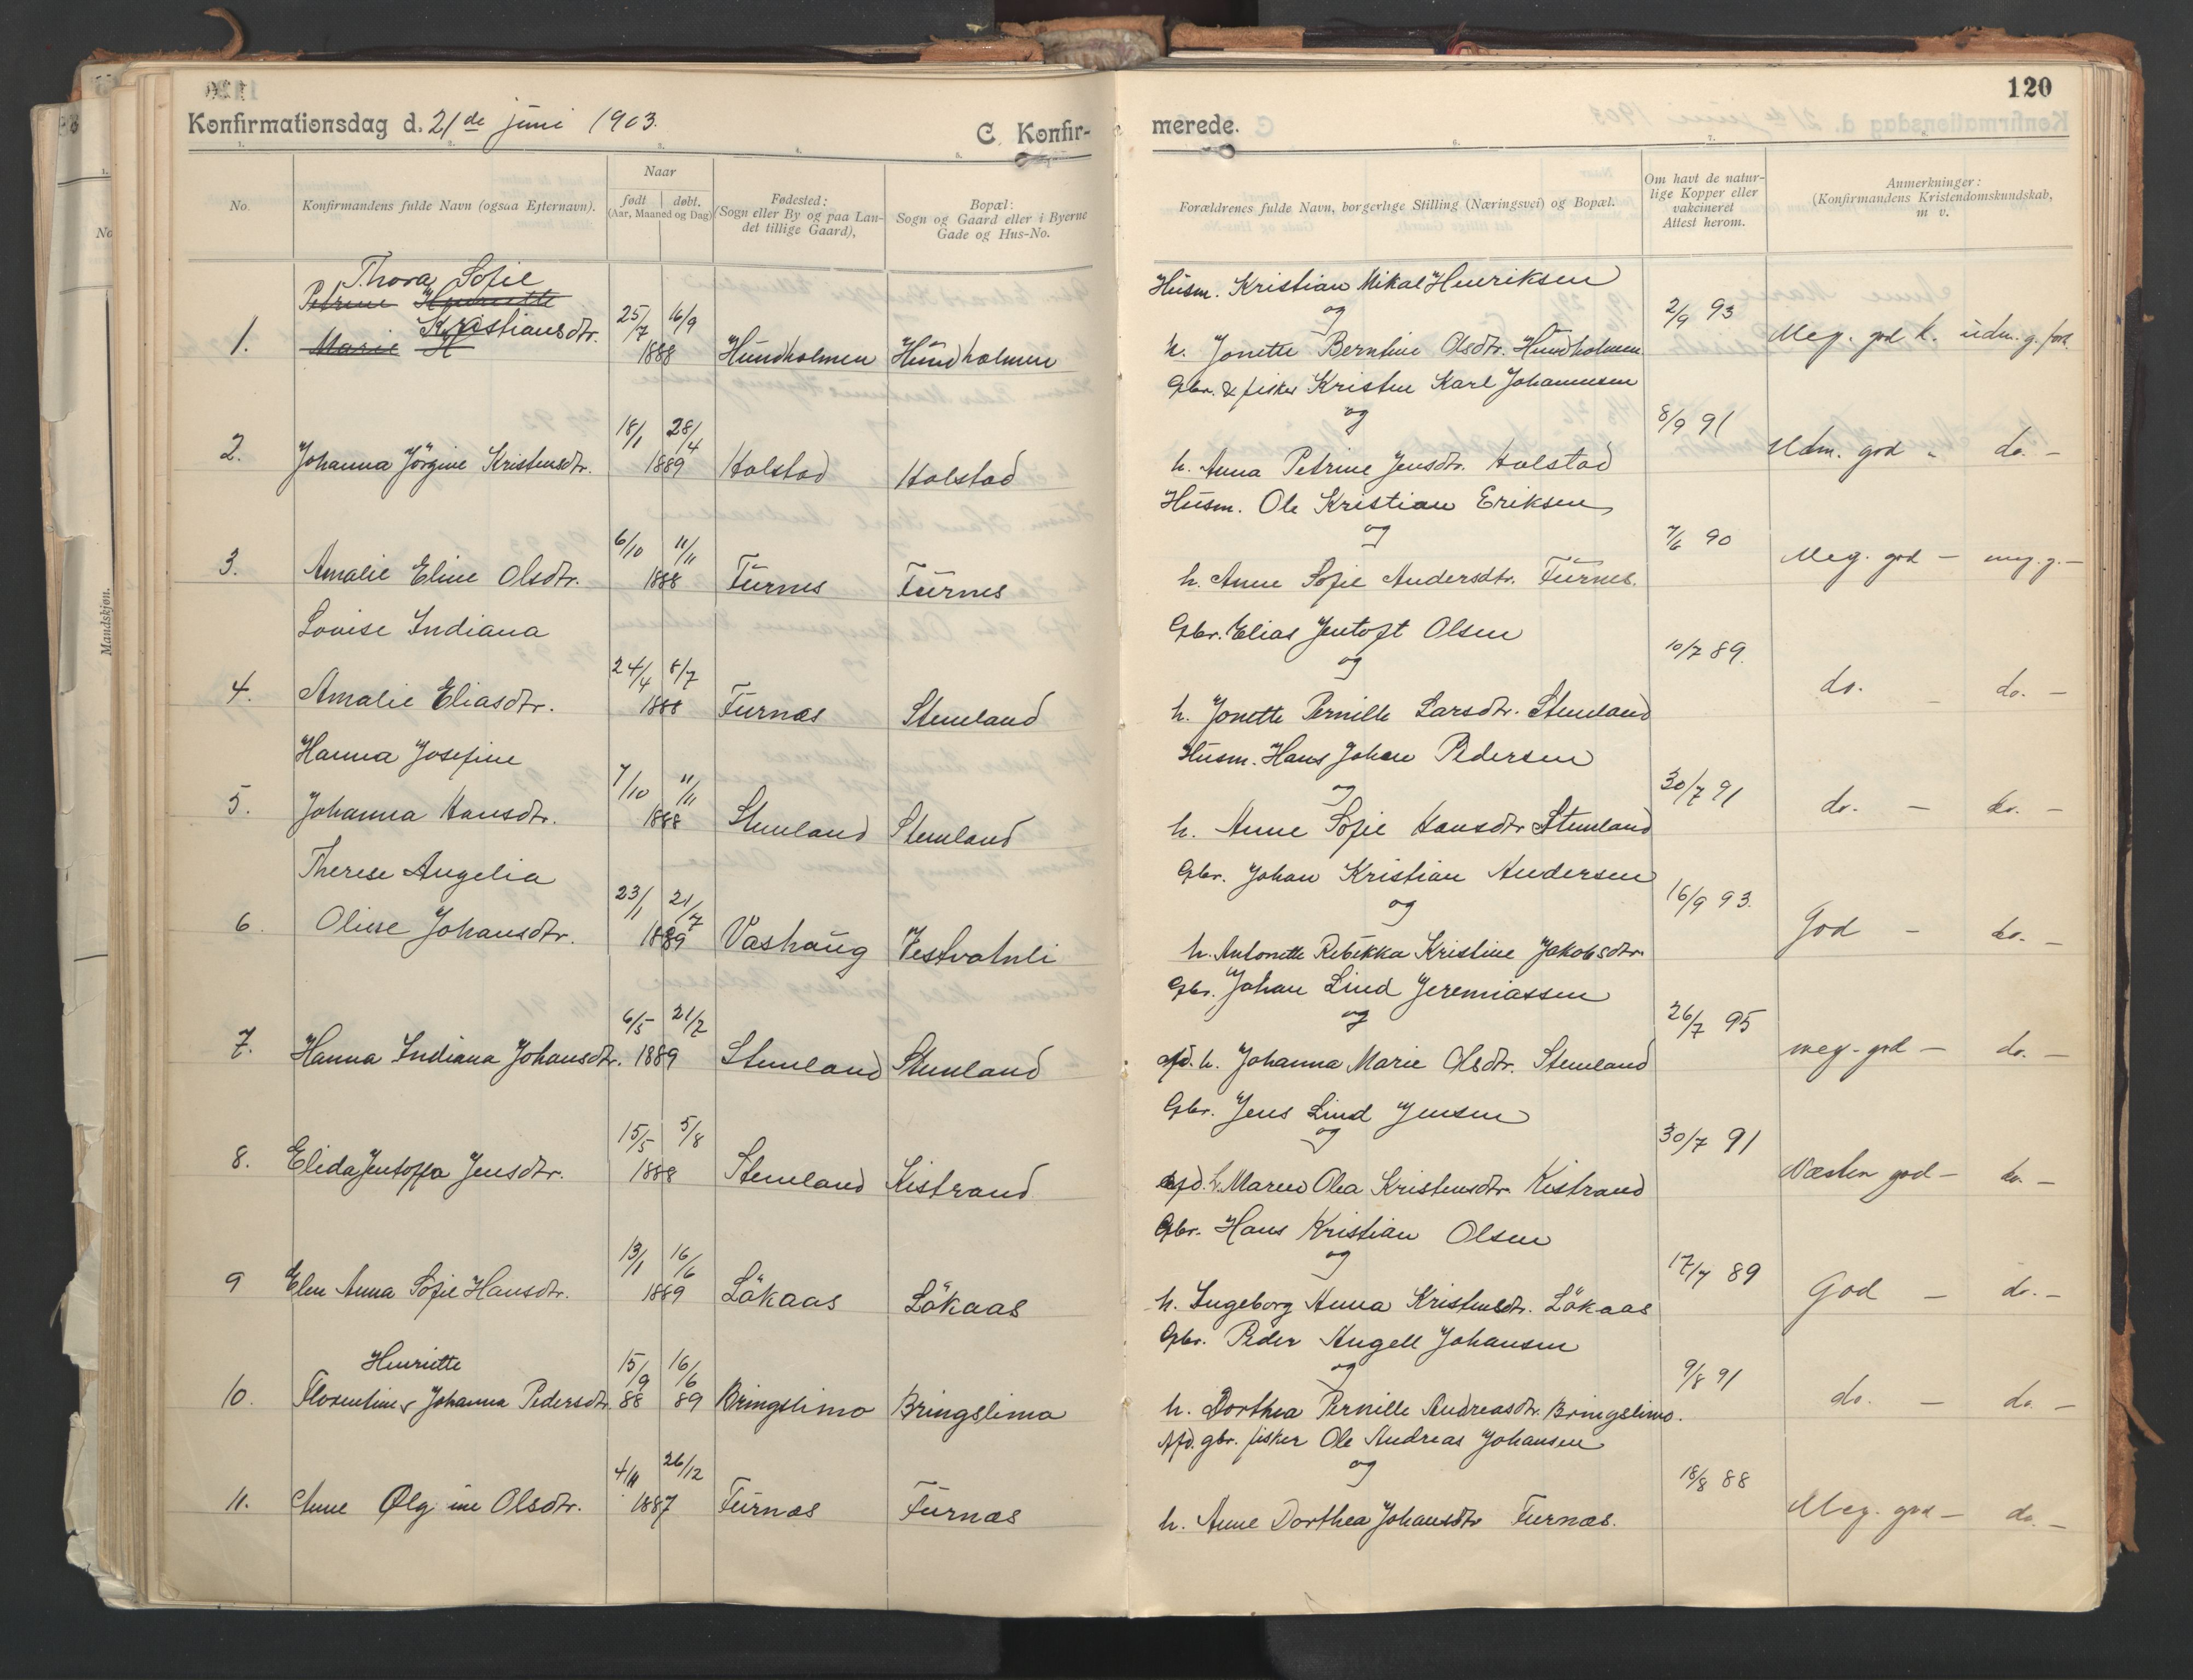 120
Konfirmationsdag d. 21de juni 1903.
C. Konfir-
merede.
1. 2. 3. 4. 5. 6. 7.
No.
Konfirmandens fulde Navn (ogsaa Efternavn).
Naar
født døbt.
(Aar, Maaned og Dag)
Fødested:
(Sogn eller By og paa Lan-
det tillige Gaard),
Bopæl:
Sogn og Gaard eller i Byerne
Gade og Hus-No.
Forældrenes fulde Navn, borgerlige Stilling (Næringsvei) og Bopæl.
Om havt de natur-
lige Kopper eller
vakcineret
Attest herom.
Anmerkninger:
(Konfirmandens Kristendomskundskab,
m v.
Thora Sofie
Petrine Henriette
Kristiansdtr.
1. Marie H 25/7 16/9 1888 Hundholmen Hundholmen
Husm. Kristian Mikal Henriksen
og
h. Jonette Berntine Olsdtr. Hundholmen
2/9 93 Meg. god k. udm. g. fort.
2. Johanna Jörgine Kristensdtr. 18/1 28/4 1889 Halstad Halstad
Gbr. & fisker Kristen Karl Johannesen
og
h. Anna Petrine Jensdtr. Halstad
8/9 91 Udm. god - do. -
3. Amalie Eline Olsdtr. 6/10 11/11 1888 Furnes Furnes
Husm. Ole Kristian Eriksen
og
h. Anne Sofie Andersdtr. Furnes.
7/6 90 Meg. god - meg. g. -
Lovise Indiana
4. Amalie Eliasdtr. 24/4 8/7 1888 Furnæs Stemland
Gbr. Elias Jentoft Olsen
og
h. Jonette Pernille Larsdtr. Stemland
10/7 89. do. - do. -
Hanna Josefine
5. Johanna Hansdtr. 7/10 11/11 1888 Stemland Stemland
Husm. Hans Johan Pedersen
og
h. Anne Sofie Hansdtr Stemland
30/7 91 do. - do. -
Therese Angelia
6 Oline Johansdtr. 23/1 21/7 1889 Vashaug Vestvatnli
Gbr. Johan Kristian Andersen
og
h. Antonette Rebekka Kristine Jakobsdtr.
16/9 93. God - do. -
7. Hanna Indiana Johansdtr. 6/5 21/7 1889 Stemland Stemland
Gbr. Johan Lind Jeremiassen
og
afd. h. Johanna Marie Olsdtr. Stemland
26/7 95 meg. god - do. -
8. Elida Jentoffa Jensdtr. 15/5 5/8 1888 Stemland Kistrand
Gbr. Jens Lind Jensen
og
afd. h. Maren Olea Kristensdtr. Kistrand
30/7 91 Næsten god - do. -
9 Elen Anna Sofie Hansdtr. 13/1 16/6 1889 Lökaas Lökaas
Gbr. Hans Kristian Olsen
og
h. Ingeborg Anna Kristensdtr. Lökaas
17/7 89 God - do. -
Henriette
10. Florentine Johanna Pedersdtr. 15/9 88 16/6 89 Bringslimo Bringslimo
Gbr. Peder Angell Johansen
og
h. Dorthea Pernille Andreasdtr. Bringslimo.
9/8 91 do. - do. -
11. Anne Olgine Olsdtr. 4/11 26/12 1887 Furnæs Furnæs
Afd. gbr. fisker Ole Andreas Johansen
og
h. Anne Dorthea Johansdtr Furnæs.
18/8 88 Meg. god - do. -
No
Mandskjøn.